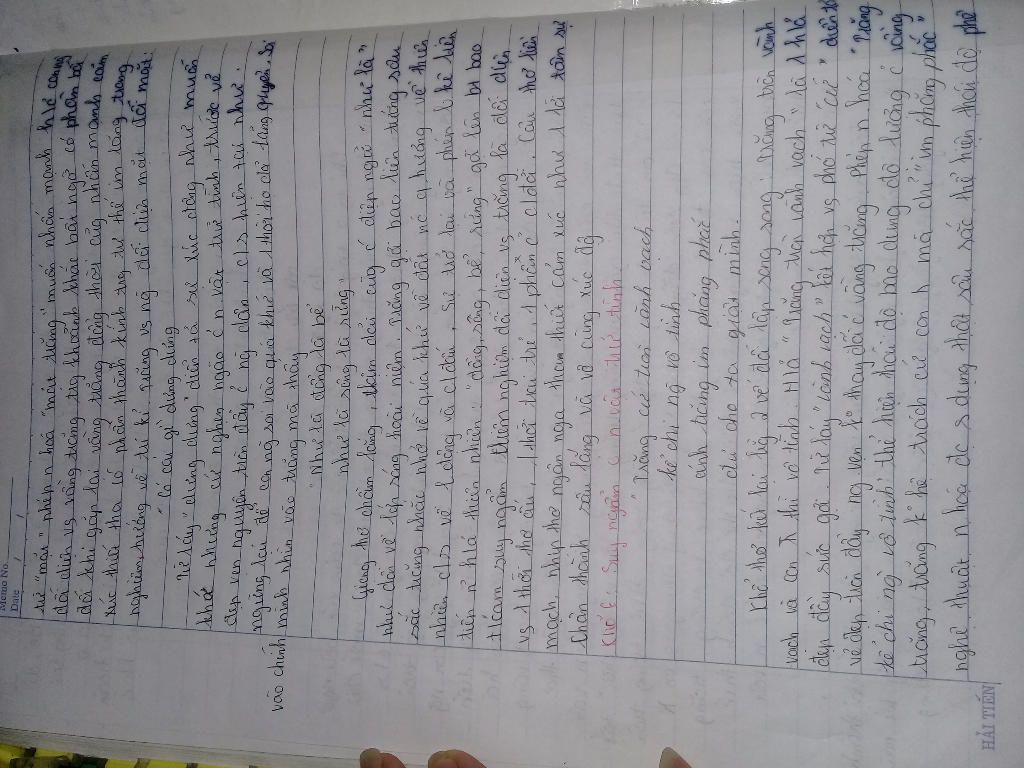 Memo No.
Date / /
từ "mặt" phép n hoá "mặt trăng" muốn nhấn mạnh
đối diện vs vầng trăng trg khoảnh khắc bất ngờ có phần bối
rối khi gặp lại vầng trăng đồng thời cũng nhấn mạnh cảm
xúc thiết tha có phần thành kính trg tư thế im lặng trang
nghiêm, hướng về tri kỉ. giống vs ng đối diện mặt đối mặt
"có cái gì rưng rưng"
Từ láy "rưng rưng" diễn tả sự xúc động như muốn
khóc nhưng cứ nghẹn ngào ở n vật trữ tình, trước vẻ
đẹp vẹn nguyên tiền đầy ý ng dân, c/s hiện tại như
ngừng lại để con ng soi vào quá khứ và thời họ đã lãng quên, soi
vào chính mình nhìn vào trăng mà thấy
"như là đồng là bể
như là sông là rừng"
Giọng thơ chậm lắng, thấm đẫm cùng c điệp ngữ "như là"
như dội về lớp sóng hoài niệm, niềm gợi bao liên tưởng sâu
sắc tiếng nhắc nhở về quá khứ về đất nc q hương về thiên
nhiên c/s về 1 đồng và c/đấu, sự trở lại và phép l kê liên
tiếp n h/ả thiên nhiên "đồng, sông, bể, rừng" gợi lên bt bao
t/cảm suy ngẫm thiêng nghiêm đối diện vs trăng là đối diện
vs 1 thời thơ ấu, 1 thời trai trẻ, 1 phần c đời. Câu thơ liền
mạch, nhịp thơ ngân nga tha thiết cảm xúc như 1 lời tâm sự
chân thành sâu lắng và vô cùng xúc động
Khổ 6: Suy ngẫm c n vật trữ tình
"Trăng cứ tròn vành vạch
kể chi ng vô tình
ánh trăng im phăng phắc
đủ cho ta giật mình.
Khổ thơ kết lại bằng 2 vế đối lập song song: Trăng tròn vành
vạch và con ng thì vô tình. H/ả "Trăng tròn vành vạch" là 1 h/ả
đẹp đầy sức gợi. Từ láy "vành vạch" kết hợp vs phó từ "cứ" diễn tả
vẻ đẹp tròn đầy ng vẹn ko thay đổi c vầng trăng. Phép n hoá "Trăng
kể chi ng vô tình" thể hiện thái độ bao dung độ lượng c vầng
trăng, trăng k hề trách cứ con ng mà chỉ "im phăng phắc"
nghệ thuật n hoá đc s dụng thật sâu sắc thể hiện thái độ
HẢI TIẾN